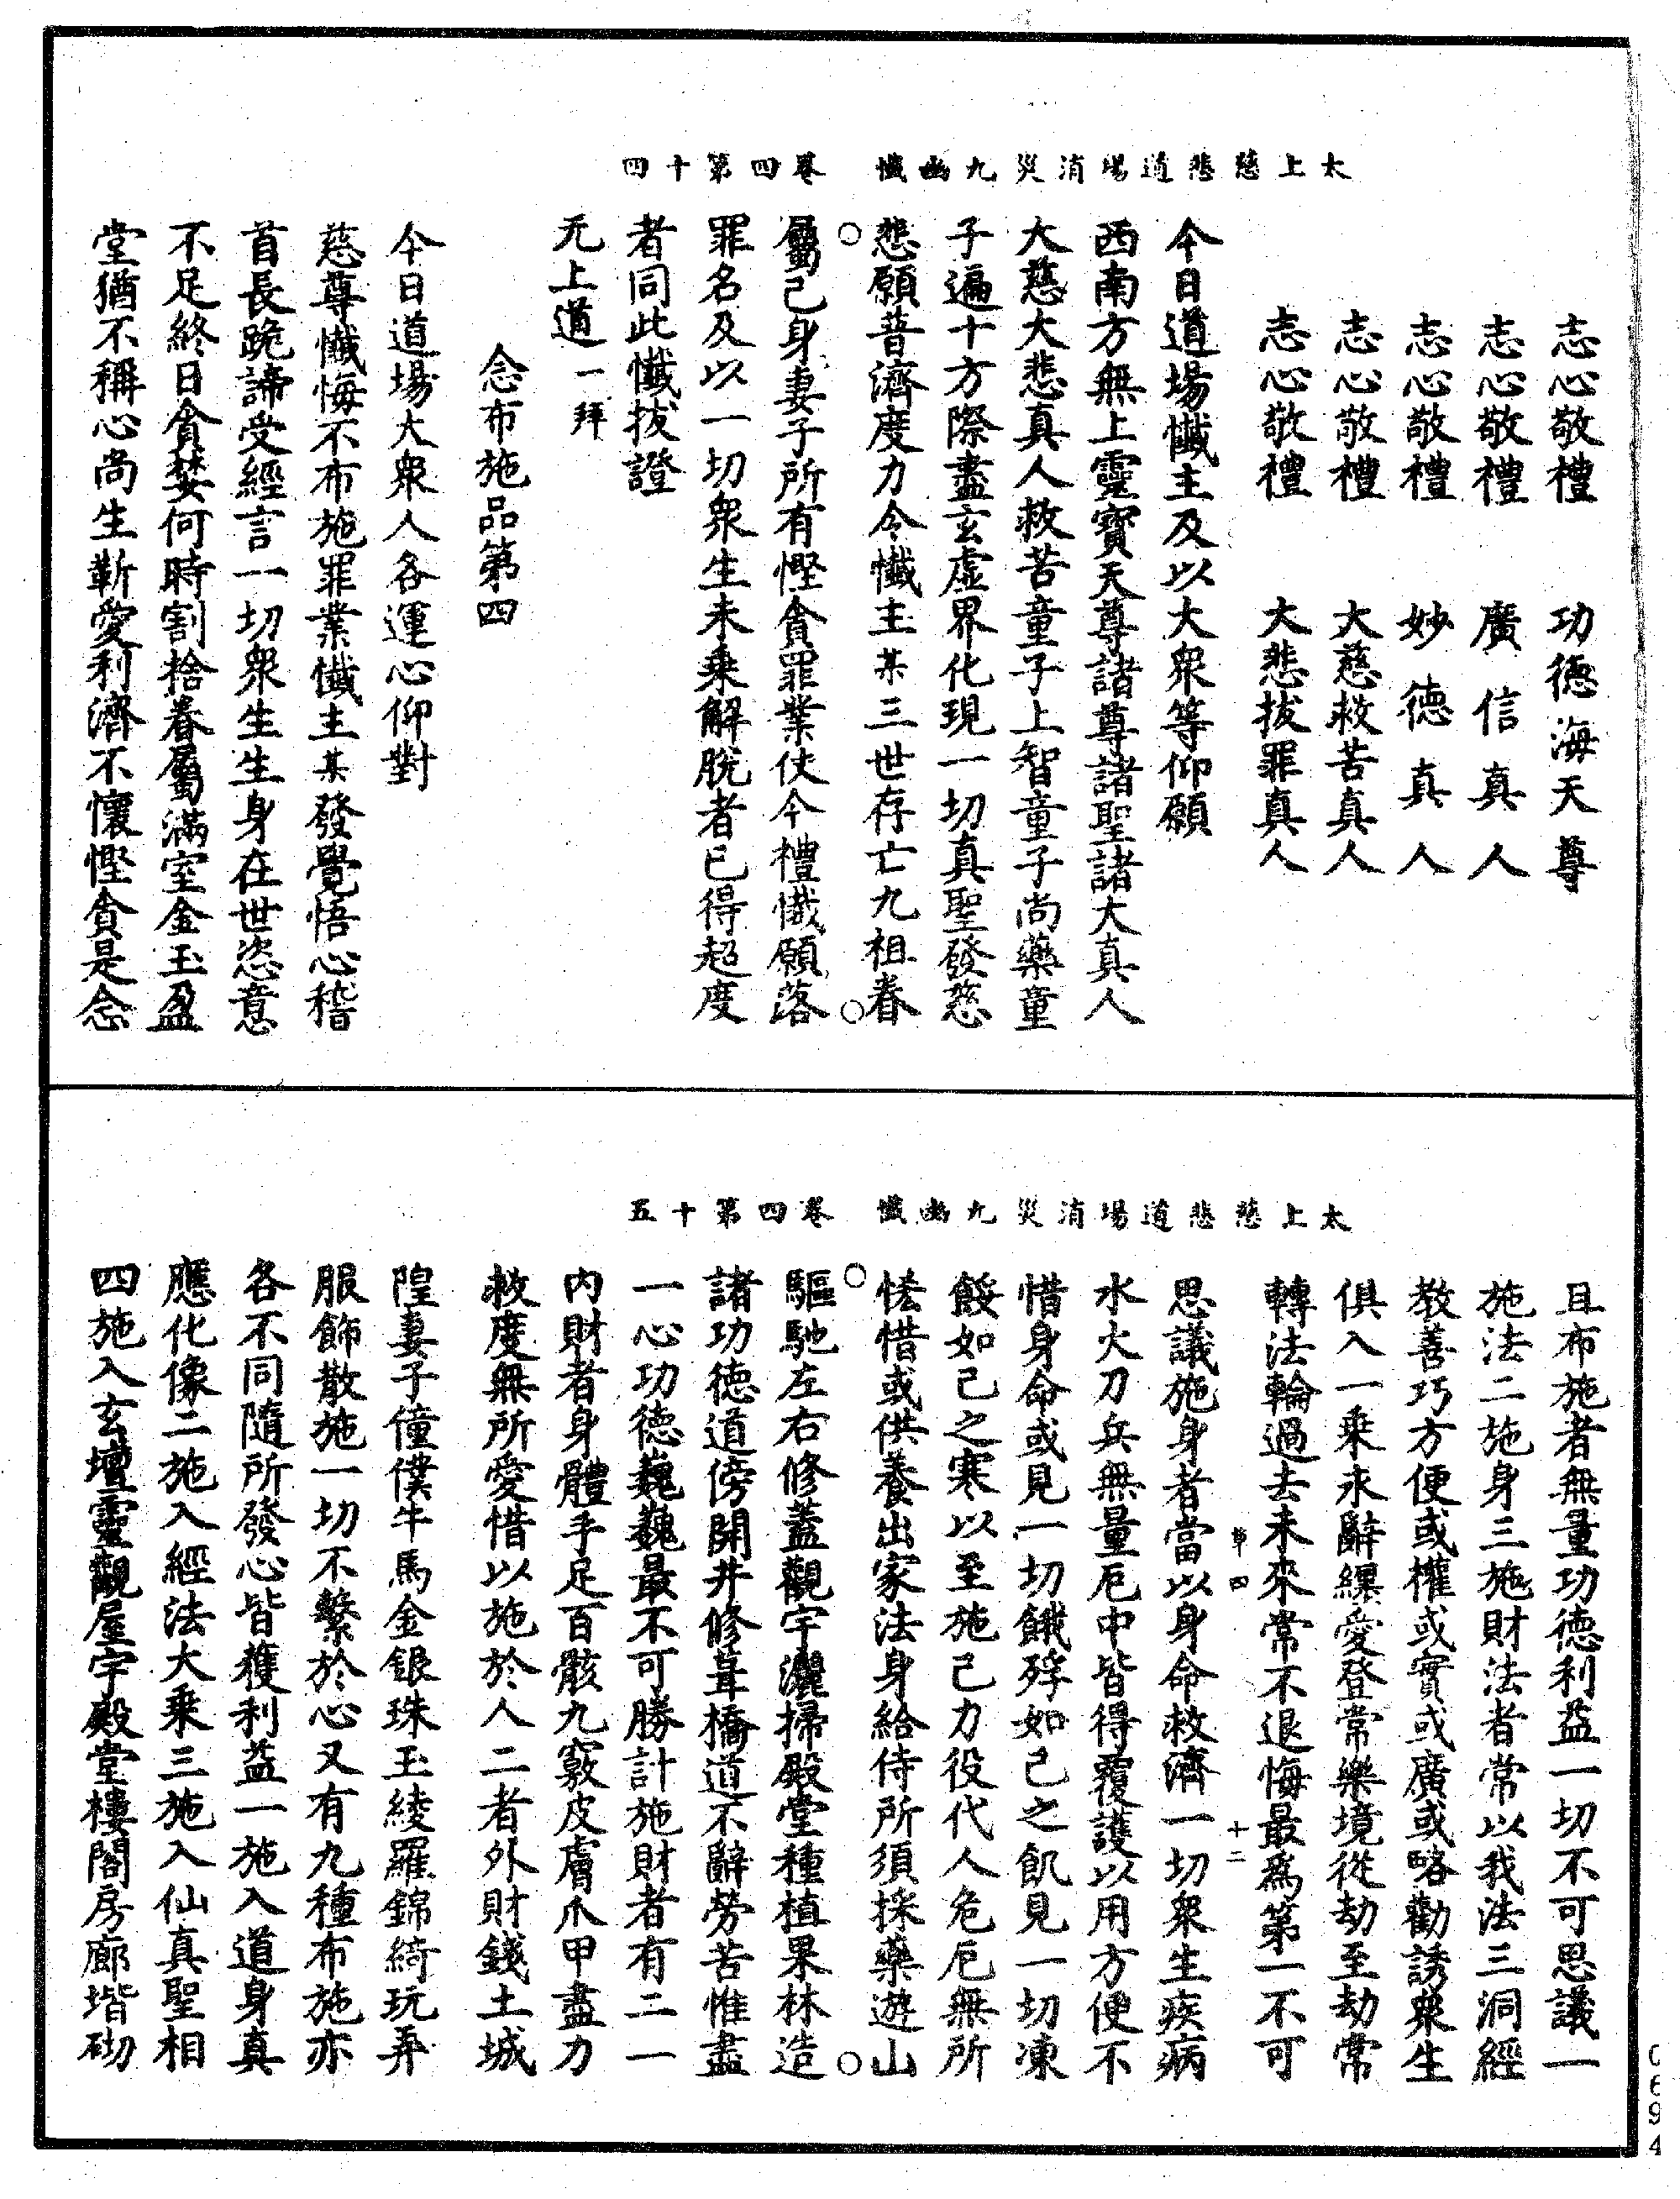 太上慈悲道場消災九幽懺　卷四第十四
志心敬禮　功德海天尊
志心敬禮　廣信真人
志心敬禮　妙德真人
志心敬禮　大慈救苦真人
志心敬禮　大悲拔罪真人
今日道場懺主及以大衆等仰願
西南方無上靈寶天尊諸尊諸聖諸大真人
大慈大悲真人救苦童子上智童子尚藥童
子遍十方際盡玄虛界化現一切真聖發慈
悲願普濟度力令懺主某三世存亡九祖眷
屬己身妻子所有慳貪罪業伏今禮懺願落
罪名及以一切衆生未乗解脫者已得超度
者同此懺拔證
无上道一拜
念布施品第四
今日道場大衆人各運心仰對
慈尊懺悔不布施罪業懺主某發覺悟心稽
首長跪諦受經言一切衆生生身在世恣意
不足終日貪婪何時割捨眷屬滿室金玉盈
堂猶不稱心尚生靳愛利濟不懷慳貪是念
太上慈悲道場消災九幽懺　卷四第十五
且布施者無量功德利益一切不可思議一
施法二施身三施財法者常以我法三洞經
教善巧方便或權或實或廣或略勸誘衆生
俱入一乗永辭纏愛登常樂境從劫至劫常
轉法輪過去未來常不退悔最爲第一不可
思議施身者當以身命救濟一切衆生疾病
水火刀兵無量厄中皆得覆護以用方便不
惜身命或見一切餓殍如己之飢見一切凍
餒如己之寒以至施己力役代人危厄無所
恡惜或供養出家法身給侍所須採藥遊山
驅馳左右修蓋觀宇灑掃殿堂種植果林造
諸功徳道傍開井修葺橋道不辭勞苦惟盡
一心功德巍巍最不可勝計施財者有二一
内財者身體手足百骸九竅皮膚爪甲盡力
救度無所愛惜以施於人二者外財錢土城
隍妻子僮僕牛馬金銀珠玉綾羅錦綺玩弄
服飾散施一切不繫於心又有九種布施亦
各不同隨所發心皆獲利益一施入道身真
應化像二施入經法大乗三施入仙真聖相
四施入玄壇靈觀屋宇殿堂樓閣房廊堦砌
十二
0694